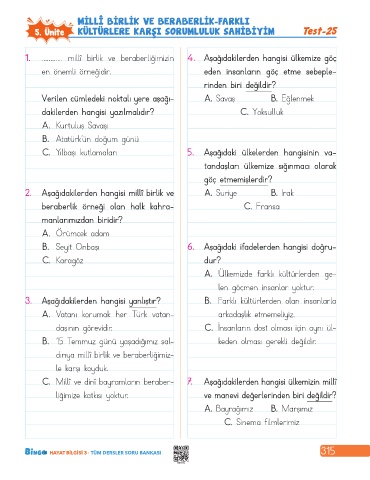 5. Ünite
MİLLÎ BİRLİK VE BERABERLİK-FARKLI
KÜLTÜRLERE KARŞI SORUMLULUK SAHİBİYİM
Test-25
1. ............ millî birlik ve beraberliğimizin
en önemli örneğidir.
Verilen cümledeki noktalı yere aşağı-
dakilerden hangisi yazılmalıdır?
A. Kurtuluş Savaşı
B. Atatürk'ün doğum günü
C. Yılbaşı kutlamaları
2. Aşağıdakilerden hangisi millî birlik ve
beraberlik örneği olan halk kahra-
manlarımızdan biridir?
A. Örümcek adam
B. Seyit Onbaşı
C. Karagöz
3. Aşağıdakilerden hangisi yanlıştır?
A. Vatanı korumak her Türk vatan-
daşının görevidir.
B. 15 Temmuz günü yaşadığımız sal-
dırıya millî birlik ve beraberliğimiz-
le karşı koyduk.
C. Millî ve dinî bayramların beraber-
liğimize katkısı yoktur.
4. Aşağıdakilerden hangisi ülkemize göç
eden insanların göç etme sebeple-
rinden biri değildir?
A. Savaş B. Eğlenmek
C. Yoksulluk
5. Aşağıdaki ülkelerden hangisinin va-
tandaşları ülkemize sığınmacı olarak
göç etmemişlerdir?
A. Suriye B. Irak
C. Fransa
6. Aşağıdaki ifadelerden hangisi doğru-
dur?
A. Ülkemizde farklı kültürlerden ge-
len göçmen insanlar yoktur.
B. Farklı kültürlerden olan insanlarla
arkadaşlık etmemeliyiz.
C. İnsanların dost olması için aynı ül-
keden olması gerekli değildir.
7. Aşağıdakilerden hangisi ülkemizin millî
ve manevi değerlerinden biri değildir?
A. Bayrağımız B. Marşımız
C. Sinema filmlerimiz
BİNGO HAYAT BİLGİSİ 3 - TÜM DERSLER SORU BANKASI
315